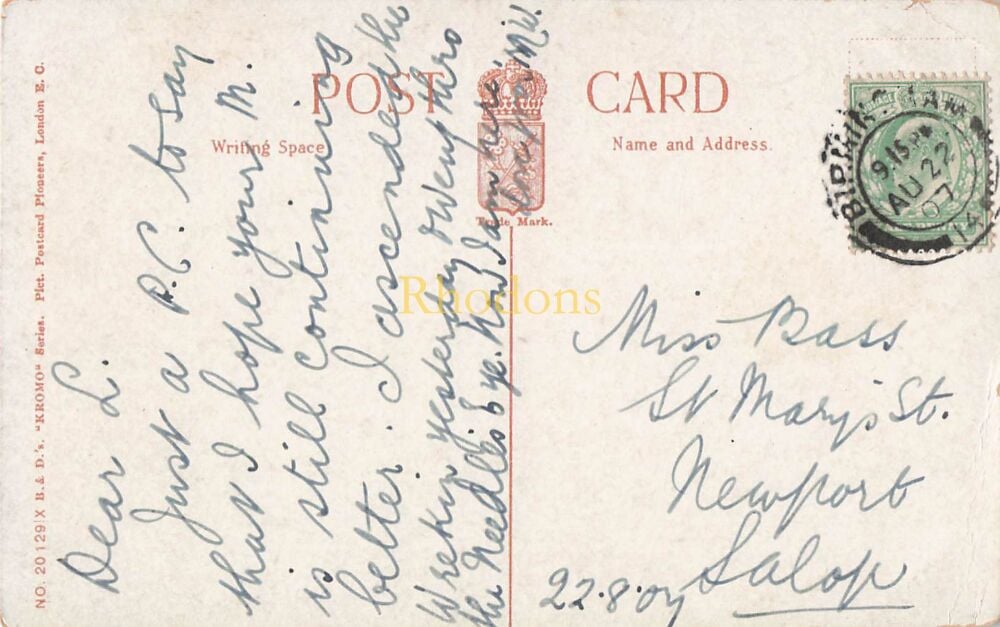 POST CARD
Writing Space
Name and Address.
Trade Mark.
NO. 20129/X B. & D.'s. "KROMO" Series. Pict. Postcard Pioneers, London E.C.
BIRMINGHAM
9.15 PM
AU 22
07
14
Dear L.
Just a P.C. to say
that I hope your M.
is still continuing
better. I ascended the
Wrekin yesterday & went thro
the Needle's Eye. Now I am here
Miss Bass
St Mary's St.
Newport
Salop
22.8.07
Rhodons